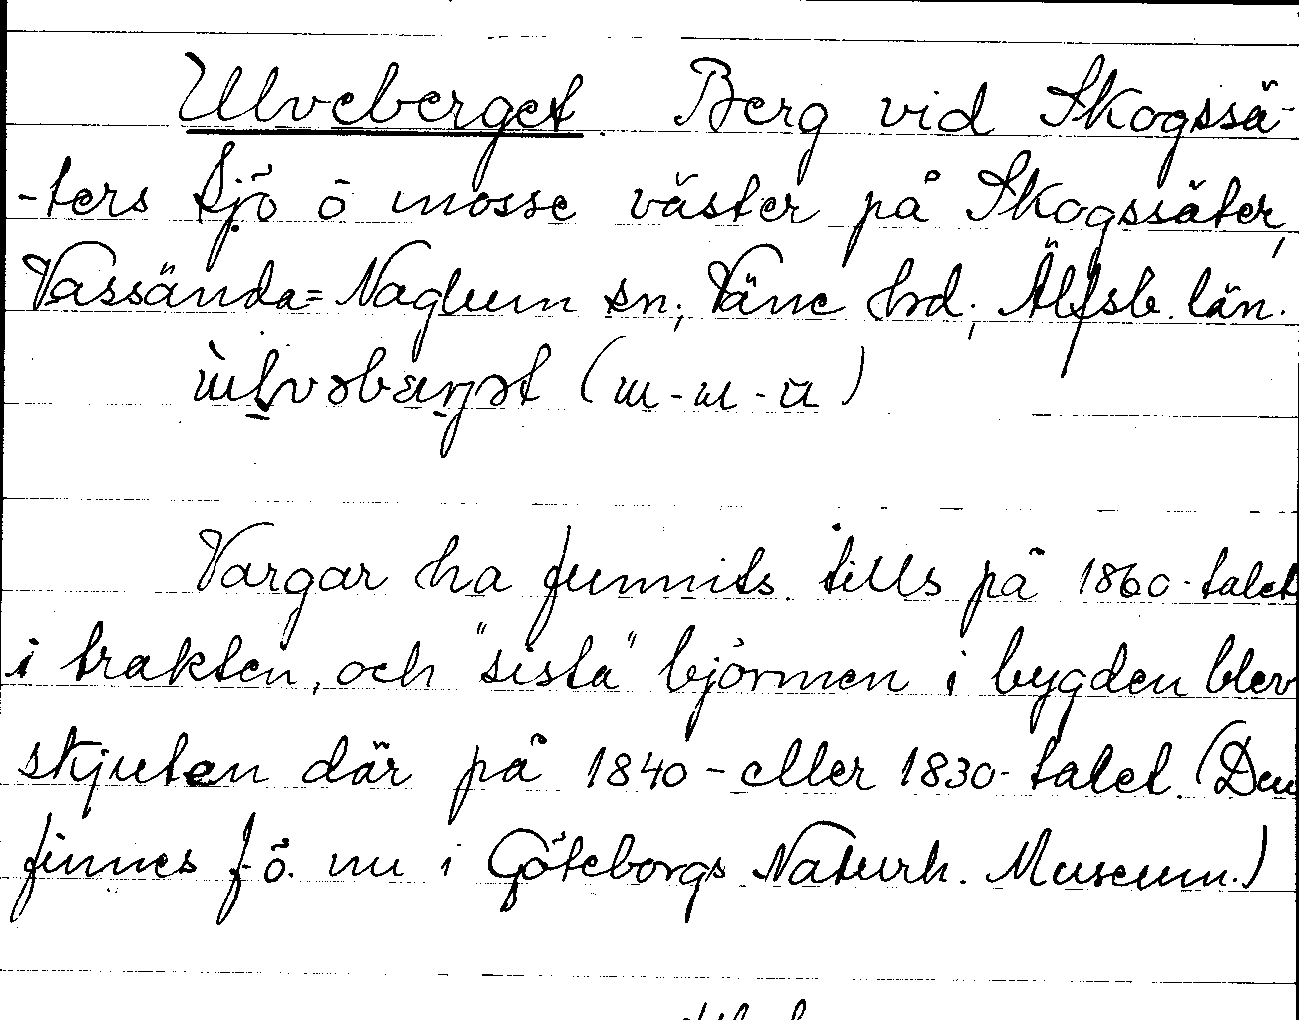 Ulveberget. Berg vid Skogssä-
-ters sjö o mosse väster på Skogssäter,
Vassända=Naglum sn; Väne hrd; Älfsb. län.
Vargar ha funnits tills på 1860-talet
i trakten, och "sista" björnen i bygden blev
skjuten där på 1840- eller 1830-talet. (Den
finnes f.ö. nu i Göteborgs Naturh. Museum.)